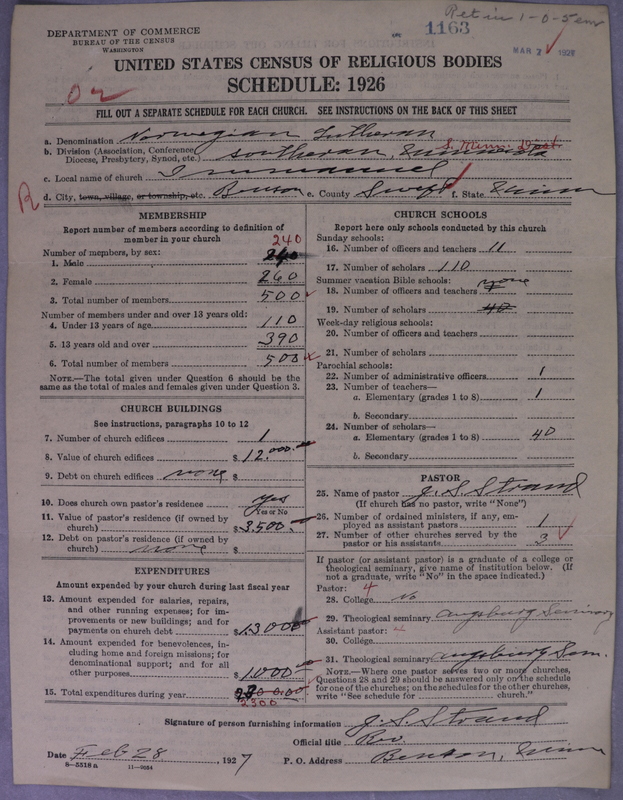 Ret in 1-0-5 em
1163
DEPARTMENT OF COMMERCE
BUREAU OF THE CENSUS
WASHINGTON
MAR 2 1927
UNITED STATES CENSUS OF RELIGIOUS BODIES
SCHEDULE: 1926
FILL OUT A SEPARATE SCHEDULE FOR EACH CHURCH. SEE INSTRUCTIONS ON THE BACK OF THIS SHEET
a. Denomination Norwegian Lutheran
b. Division (Association, Conference, Diocese, Presbytery, Synod, etc.) Southern Minnesota S. Minn. Dist.
c. Local name of church Immanuel
R
d. City, town, village, or township, etc. Benson e. County Swift f. State Minn
MEMBERSHIP
Report number of members according to definition of member in your church
Number of members, by sex: 240
1. Male 240
2. Female 260
3. Total number of members 500
Number of members under and over 13 years old:
4. Under 13 years of age 110
5. 13 years old and over 390
6. Total number of members 500
NOTE.—The total given under Question 6 should be the same as the total of males and females given under Question 3.
CHURCH BUILDINGS
See instructions, paragraphs 10 to 12
7. Number of church edifices 1
8. Value of church edifices $ 12,000.
9. Debt on church edifices none $
10. Does church own pastor's residence yes
Yes or No
11. Value of pastor's residence (if owned by church) $ 3,500.
12. Debt on pastor's residence (if owned by church) none $
EXPENDITURES
Amount expended by your church during last fiscal year
13. Amount expended for salaries, repairs, and other running expenses; for improvements or new buildings; and for payments on church debt $ 1300
14. Amount expended for benevolences, including home and foreign missions; for denominational support; and for all other purposes $ 1000
15. Total expenditures during year 2300.00
2300
CHURCH SCHOOLS
Report here only schools conducted by this church
Sunday schools:
16. Number of officers and teachers 11
17. Number of scholars 110
Summer vacation Bible schools: none
18. Number of officers and teachers
19. Number of scholars 40
Week-day religious schools:
20. Number of officers and teachers
21. Number of scholars
Parochial schools:
22. Number of administrative officers 1
23. Number of teachers—
a. Elementary (grades 1 to 8) 1
b. Secondary
24. Number of scholars—
a. Elementary (grades 1 to 8) 40
b. Secondary
PASTOR
25. Name of pastor J. S. Strand
(If church has no pastor, write "None")
26. Number of ordained ministers, if any, employed as assistant pastors 1
27. Number of other churches served by the pastor or his assistants 3
If pastor (or assistant pastor) is a graduate of a college or theological seminary, give name of institution below. (If not a graduate, write "No" in the space indicated.)
Pastor: 4
28. College No
29. Theological seminary Augsburg Seminary
Assistant pastor:
30. College
31. Theological seminary Augsburg Sem.
NOTE.—Where one pastor serves two or more churches, Questions 28 and 29 should be answered only on the schedule for one of the churches; on the schedules for the other churches, write "See schedule for church."
Signature of person furnishing information J. S. Strand
Official title Rev.
Date Feb 28, 1927 P. O. Address Benson, Minn
8—5318 a 11—9084